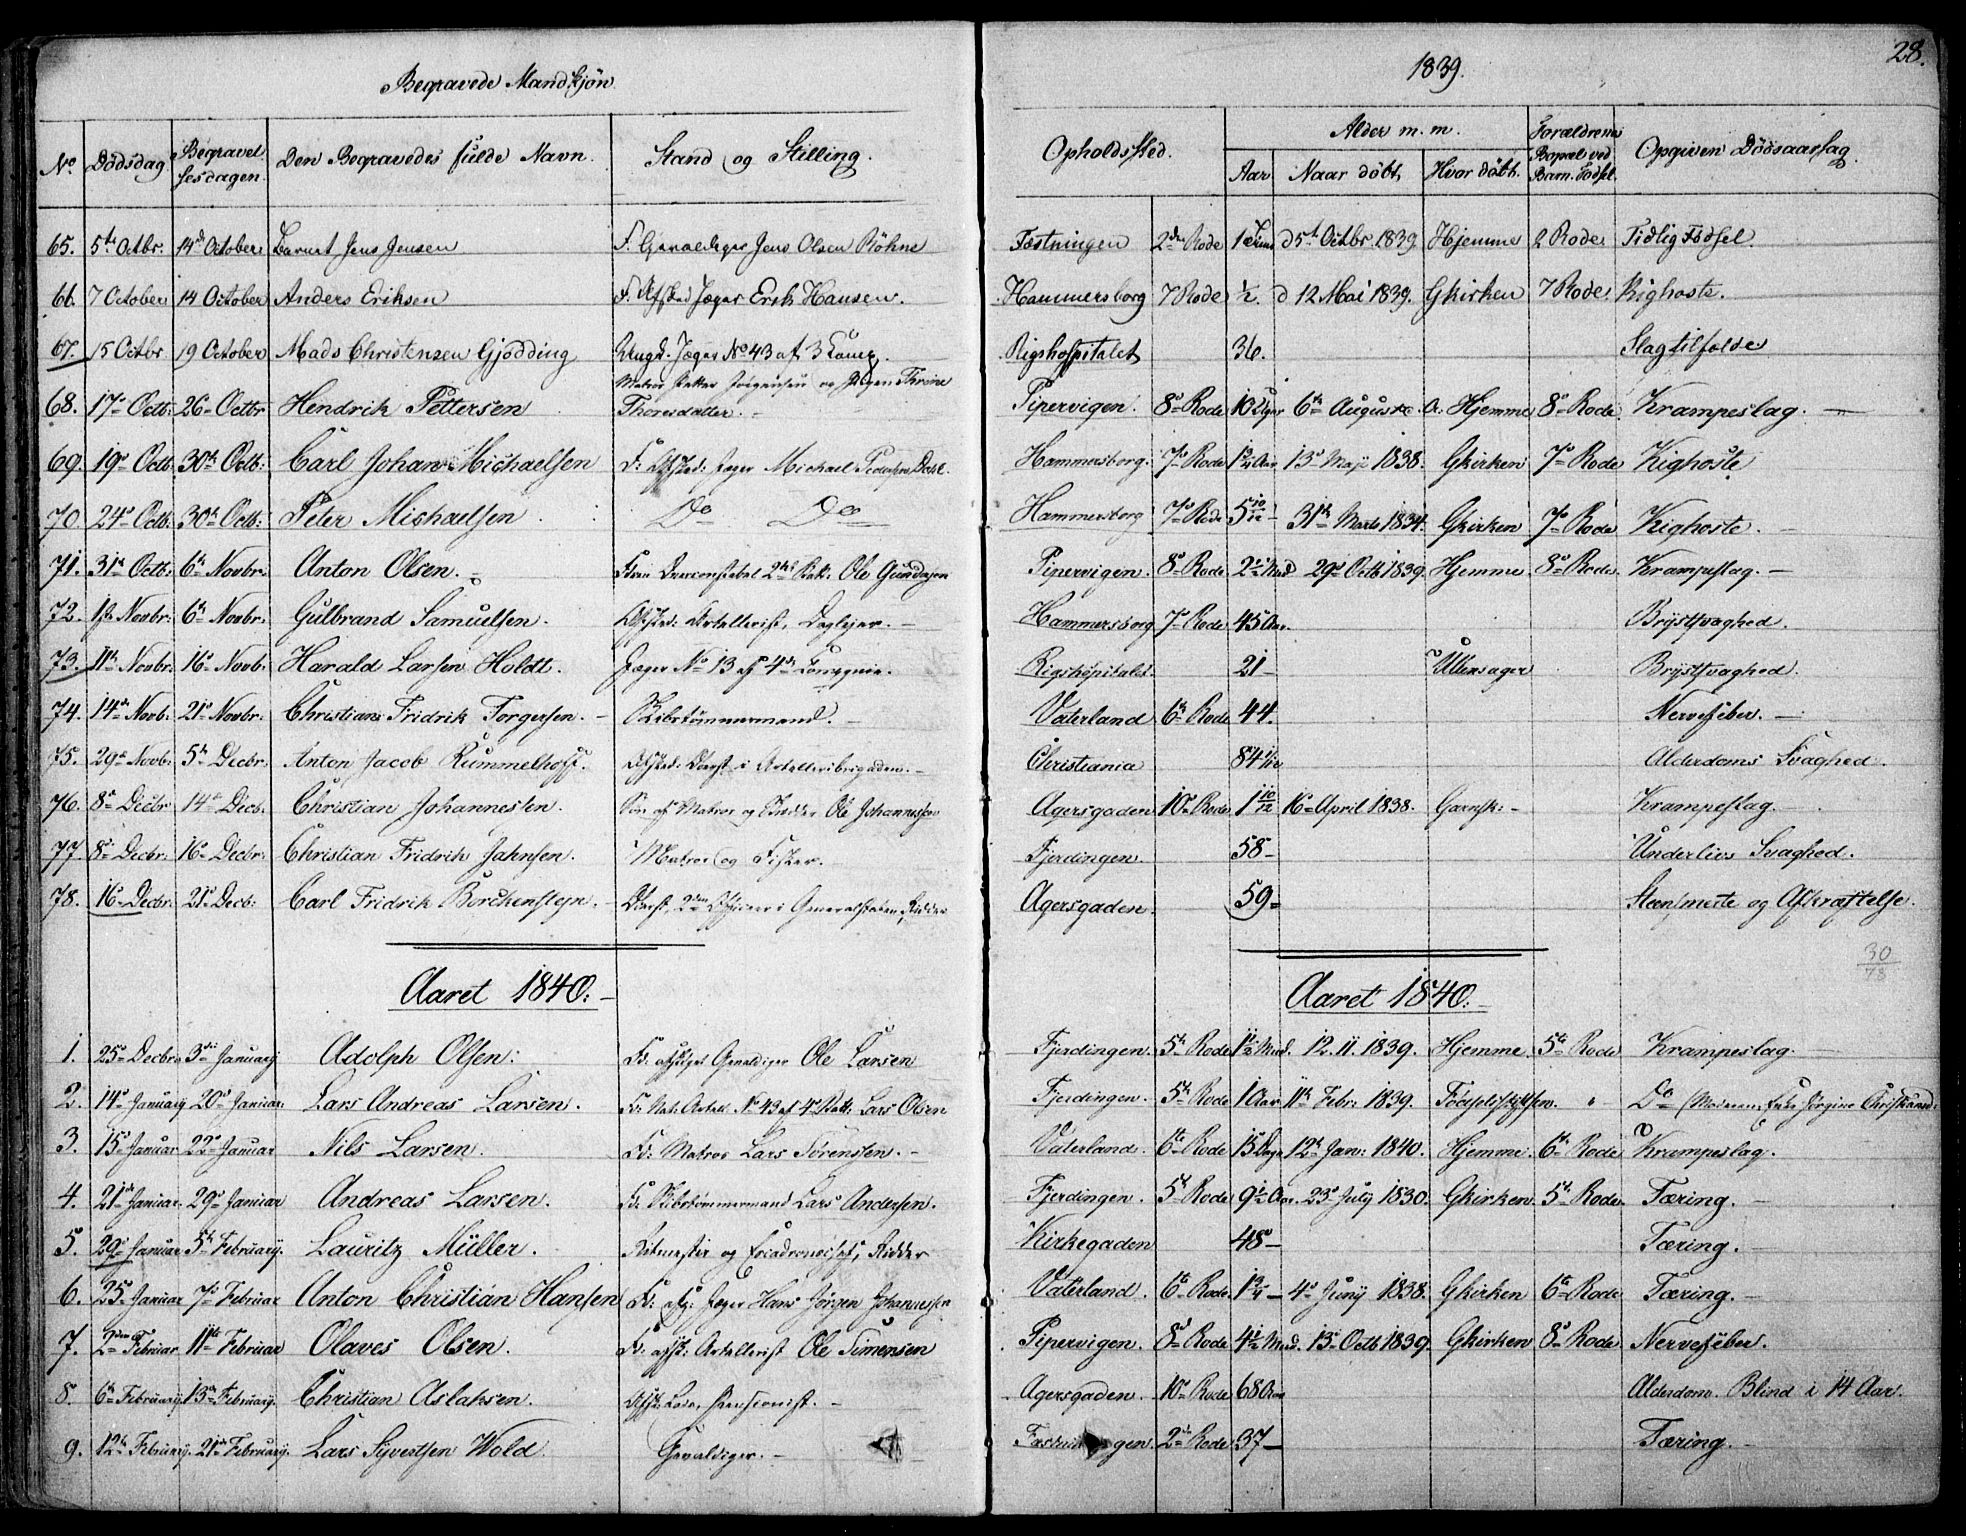 Begravede Mandkjön.
1839.
28.
No. Dödsdag. Begravelsesdagen. Den Begravedes fulde Navn. Stand og Stilling. Opholdssted. Alder m. m. Aar Naar döbt. Hvor döbt. Forældrenes Bopæl ved Barn. Födsel Opgiven Dödsaarsag.
65. 5te Octbr. 14d October Barnet Jens Jensen F. Gevaldiger Jens Olsen Röhne Fæstningen 2den Rode 1 d 5t Octbr 1839 Hjemme 2 Rode. Tidlig Födsel.
66. 7 October 14 October Anders Eriksen F. Afsked Jæger Erik Hansen. Hammersborg 7 Rode ½. d 12 Mai 1839. Gkirken 7 Rode. Kighoste.
67. 15 Octbr 19 October Mads Christensen Gjödding Jæger No 43 af 3 Comp. Rigshospitalet 36. Slagtilfælde
68. 17de Octb: 26de Octbr Hendrik Pettersen Matros Petter Jörgensen og Pigen Thrine Thoresdatter. Pipervigen. 8de Rode 10 Uger 6te Auguste Hjemme 8de Rode Krampeslag.
69. 19de Octb: 30te Octb: Carl Johan Michaelsen F: Afsked: Jæger Michael Pedersen Hammersborg. 7de Rode 1 5/12 Aar 13de Maji 1838. Gkirken 7de Rode Kighoste
70 24de Octb: 30te Octb: Peter Michaelsen Do Do Hammersborg 7de Rode 5 10/12 31te Marts 1834. Gkirken 7de Rode Kighoste.
71. 31te Octb: 6te Novbr. Anton Olsen. Overconstabel 2det Batt. Ole Gundersen Pipervigen. 8de Rode. 2½ 29de Octb 1839. Hjemme. 8de Rode. Krampeslag.
72. 1ste Novbr: 6te Novbr. Gulbrand Samuelsen. Afsked: Artellerist, Daglejer. Hammersborg 7de Rode 45 Aar. Brystsvaghed.
73. 11te Novbr: 16de Novb: Harald Larsen Holdt. Jæger No 13 af 4de Compagnie. Rigshospitalet. 21 Ullensager Brystsvaghed.
74. 14de Novb: 21de Novbr: Christians Fridrik Torgersen. Skibstömmermand. Vaterland 6te Rode 44. Nervefeber.
75. 29de Novb: 5te Decbr: Anton Jacob Rummelhoff. Afsked: Oberst i Artelleribrigaden. Christiania 84 Alderdoms Svaghed.
76. 8de Decbr 14de Decb. Christian Johannesen. Sön af Matros og Snedker Ole Johannesen Agersgaden 10de Rode 1 10/12 16de April 1838. Garnisk: Krampeslag.
77. 8de Decbr. 16de Decbr: Christian Fridrik Jahnsen. Matros og Fisker. Fjerdingen 58 Underlivs Svaghed.
78. 16de Decbr: 21de Decb. Carl Fridrik Borckenstejn. Oberst, 2den Officeer i Generalstaben, Ridder Agersgaden. 59 Steensmerte og Afkræftelse.
30/78
Aaret 1840. Aaret 1840.
1. 25de Decbr. 3die January Adolph Olsen. Gevaldiger Ole Larsen Fjerdingen. 5te Rode 1½ Md. 12. 11. 1839. Hjemme. 5te Rode Krampeslag.
2. 14de January 20de Januar. Lars Andreas Larsen. No 43 af 4de Batt: Lars Olsen Fjerdingen. 5te Rode 1 Aar 11te Febr: 1839. Födselsstiftelsen. Do (Moderen, Jörgine
3. 15de Januar 22de Januar Nils Larsen. Fd: Matros Lars Sörensen. Vaterland. 6te Rode 15 Dage 12te Jan: 1840. Hjemme. 6te Rode Krampeslag.
4. 21de Januar. 29de Januar Andreas Larsen. Fd: Skibstömmermand Lars Andersen. Fjerdingen. 5te Rode. 9½ Aar. 23de July 1830. Gkirken. 5te Rode. Tæring.
5. 29de Januar 5te February. Lauritz Müller. Ritmester og Escadronchef, Ridder Kirkegaden 48 Tæring.
6. 25de Januar 7de Februar Anton Christian Hansen Fd: afsg: Jæger Hans Jörgen Johannessen Vaterland. 6te Rode. 1¾ 4de Juny 1838. Gkirken 6te Rode Tæring.
7. 2den Februar 11te Februar Olaves Olsen. Fd: afsk: Artellerist Ole Simensen Pipervigen. 8de Rode 4½ Md. 13de Octb 1839. Gkirken 8de Rode Nervefeber.
8. 6te February. 13de February. Christian Aslaksen. Pensionist. Agersgaden. 10de Rode 68 Aar Alderdom. Blind i 14 Aar.
9. 12te February. 21de February. Lars Syvertsen Wold. Gevaldiger. Fæstningen. 2de Rode 37 Tæring.